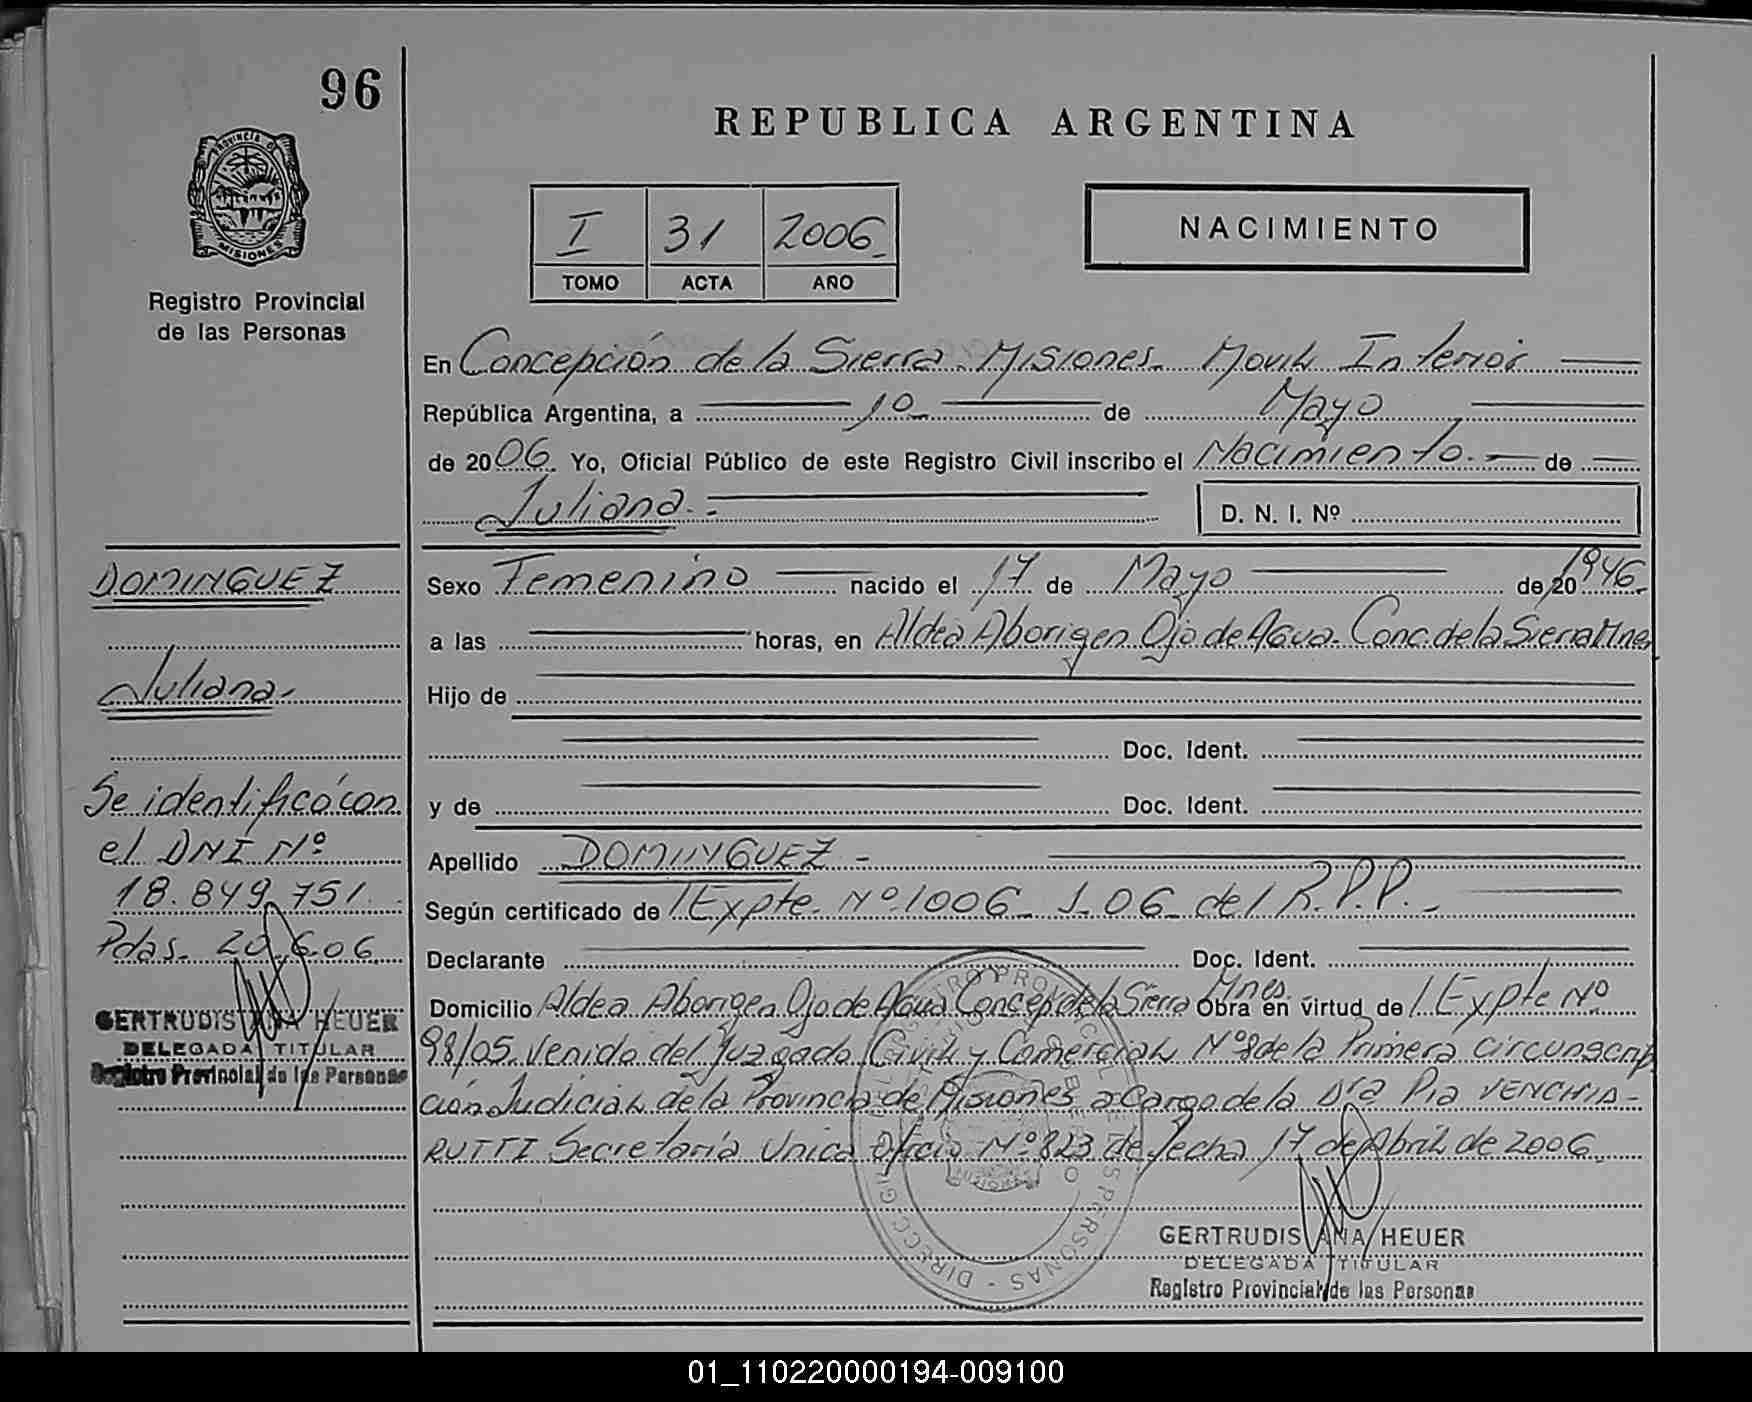 96
PROVINCIA DE
MISIONES
Registro Provincial
de las Personas
REPUBLICA ARGENTINA
I 31 2006
TOMO ACTA AÑO
NACIMIENTO
En Concepción de la Sierra. Misiones. Movil Interior
República Argentina, a 10 de Mayo
de 2006. Yo, Oficial Público de este Registro Civil inscribo el Nacimiento. de
Juliana.
D. N. I. Nº
DOMINGUEZ
Juliana.
Se identificó con
el DNI Nº
18.849.751.
Pdas. 20.6.06
GERTRUDIS ANA HEUER
DELEGADA TITULAR
Registro Provincial de las Personas
Sexo Femenino nacido el 17 de Mayo de 20 1946.
a las horas, en Aldea Aborigen Ojo de Agua. Conc. de la Sierra Mnes
Hijo de
Doc. Ident.
y de Doc. Ident.
Apellido DOMINGUEZ -
Según certificado de / Expte. Nº 1006 - J - 06 - del R.P.P. -
Declarante Doc. Ident.
Domicilio Aldea Aborigen Ojo de Agua Concep. de la Sierra Mnes. Obra en virtud de / Expte Nº
98/05. Venido del Juzgado Civil y Comercial Nº 8 de la Primera circunscrip
ción Judicial de la Provincia de Misiones a cargo de la Dra Pia VENCHIA-
RUTTI Secretaría Unica Oficio Nº 823 de fecha 17 de Abril de 2006.
GERTRUDIS ANA HEUER
DELEGADA TITULAR
Registro Provincial de las Personas
01_110220000194-009100